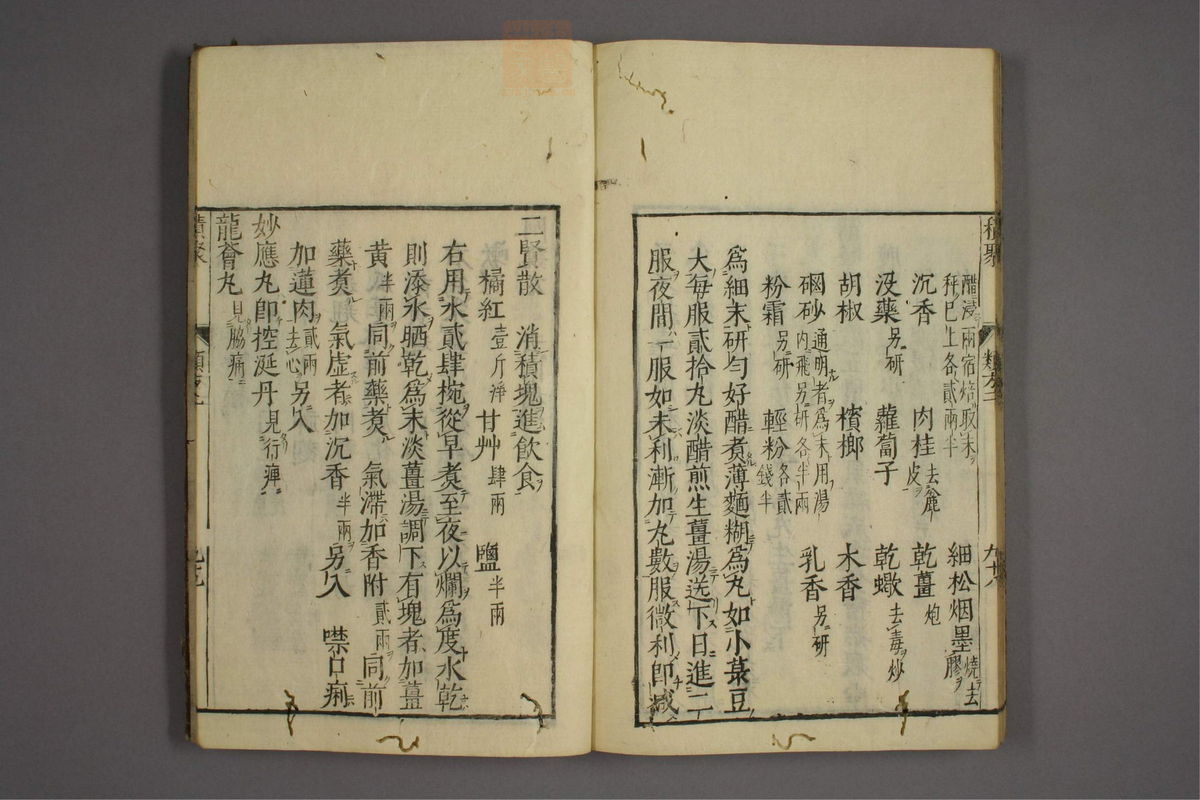 積聚 類方二 九十八
醋浸兩宿焙取末
秤已上各貳兩半 細松烟墨 燒去膠
沉香 肉桂 去麄皮 乾薑 炮
沒藥 另研 蘿蔔子 乾蠍 去毒炒
胡椒 檳榔 木香
硇砂 通明者爲末用湯内飛另研各半兩 乳香 另研
粉霜 另研 輕粉 各貳錢半
爲細末研勻好醋煮薄麵糊爲丸如小菉豆
大每服貳拾丸淡醋煎生薑湯送下日進二
服夜間一服如未利漸加丸數服微利即減
二賢散 消積塊進飲食
橘紅 壹斤淨 甘艸 肆兩 鹽 半兩
右用水貳肆椀從早煮至夜以爛爲度水乾
則添水晒乾爲末淡薑湯調下有塊者加薑
黃 半兩 同前藥煮 氣滯加香附 貳兩 同前
藥煮 氣虛者加沉香 半兩 另入 噤口痢
加蓮肉 貳兩去心 另入
妙應丸即控涎丹 見行痺
龍薈丸 見脇痛
積聚 類方二